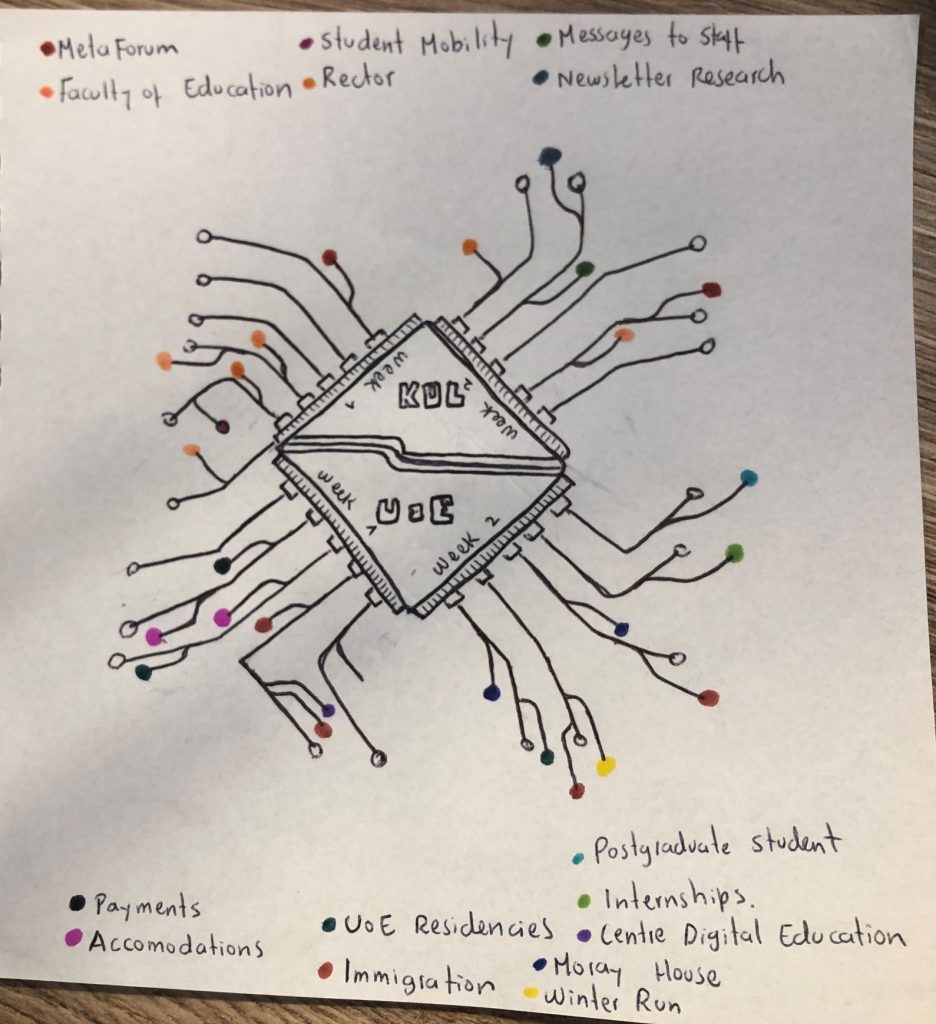 MetaForum
Student Mobility
Messages to Staff
Faculty of Education
Rector
Newsletter Research
week 1
KUL
week 2
week 1
UoE
week 2
Postgraduate student
Payments
Internships.
Accomodations
UoE Residencies
Centre Digital Education
Immigration
Moray House
Winter Run